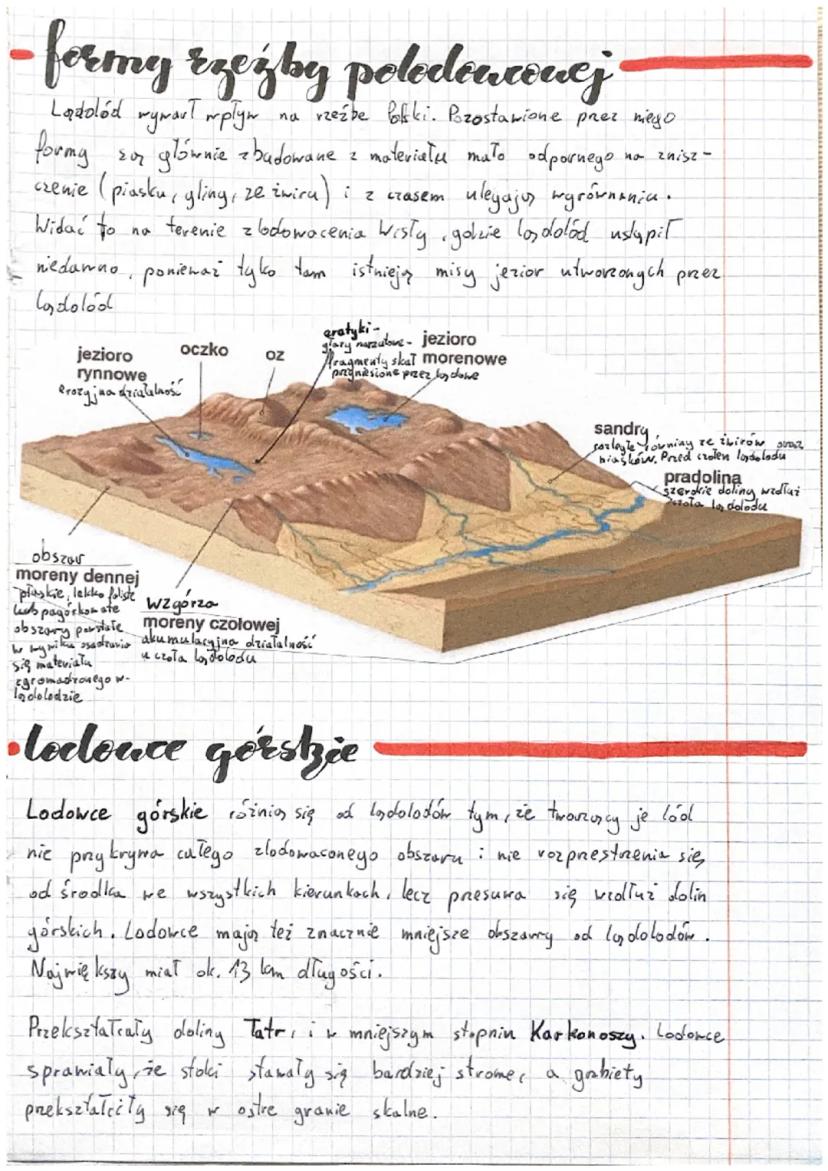 formy rzeźby polodowcowej
Lądolód wywarł wpływ na rzeźbę Polski. Pozostawione przez niego
formy są głównie zbudowane z materiału mało odpornego na znisz-
czenie (piasku, gliny, ze żwiru) i z czasem ulegają wyrównaniu.
Widać to na terenie zlodowacenia Wisły, gdzie lądolód ustąpił
niedawno, ponieważ tylko tam istnieją misy jezior utworzonych przez
lądolód
jezioro
rynnowe
erozyjna działalność
oczko
oz
eratyki-
głazy narzutowe-
fragmenty skał
przyniesione przez lądowe
jezioro
morenowe
sandry
rozległe równiny ze żwirów oraz
piasków. Przed czołem lądolodu
pradolina
szerokie doliny wzdłuż
czoła lądolodu
obszar
moreny dennej
płaskie, lekko faliste
lub pagórkowate
obszary powstałe
w wyniku osadzania
się materiału
zgromadzonego w-
lądolodzie
Wzgórza
moreny czołowej
akumulacyjna działalność
u czoła lądolodu
lodowce górskie
Lodowce górskie różnią się od lądolodów tym, że tworzący je lód
nie przykrywa całego zlodowaconego obszaru i nie rozprestrzenia się
od środka we wszystkich kierunkach, lecz presuwa się wzdłuż dolin
górskich. Lodowce mają też znacznie mniejsze obszary od lądolodów.
Największy miał ok. 13 km długości.
Przekształcały doliny Tatr, i w mniejszym stopniu Karkonoszy. Lodowce
sprawiały, że stoki stawały się bardziej strome, a grzbiety
przekształciły się w ostre granie skalne.